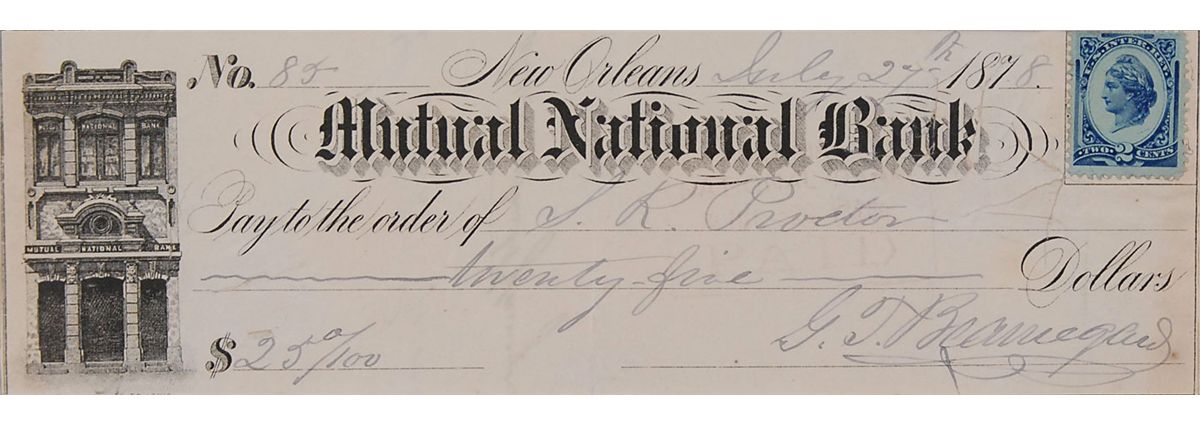 No. 85 New Orleans July 27th 1878.
U.S. INTER. REV.
TWO 2 CENTS
Mutual National Bank
NATIONAL BANK
Pay to the order of S. R. Proctor
MUTUAL NATIONAL BANK
twenty-five Dollars
$ 25 0/100 G. T. Beauregard